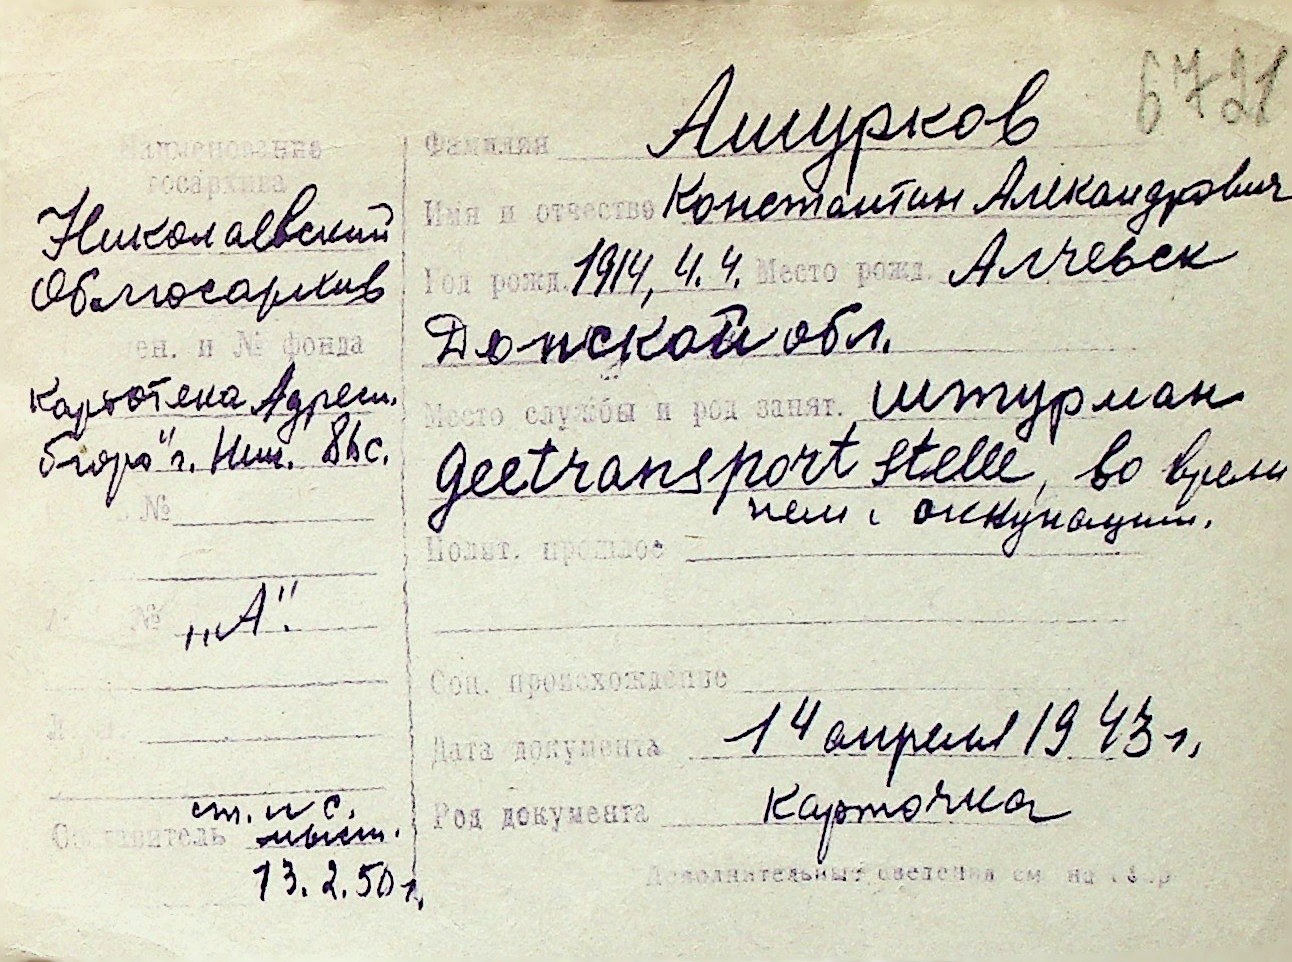 6721
Наименование
госархива
Николаевский
Облгосархив
ен. и № фонда
Картотека Адресн.
бюро" г. Ник.
№
№ „А".
Составитель
13.2.50 г.
Фамилия Ашурков
Имя и отчество Константин Александрович
Год рожд. 1914, 4.4. Место рожд. Алчевск
Донской обл.
Место службы и род занят. штурман
Seetransportstelle, во время
нем. оккупации.
Полит. прошлое
Соц. происхождение
Дата документа 14 апреля 1943 г.
Род документа карточка
Дополнительные сведения см. на обор